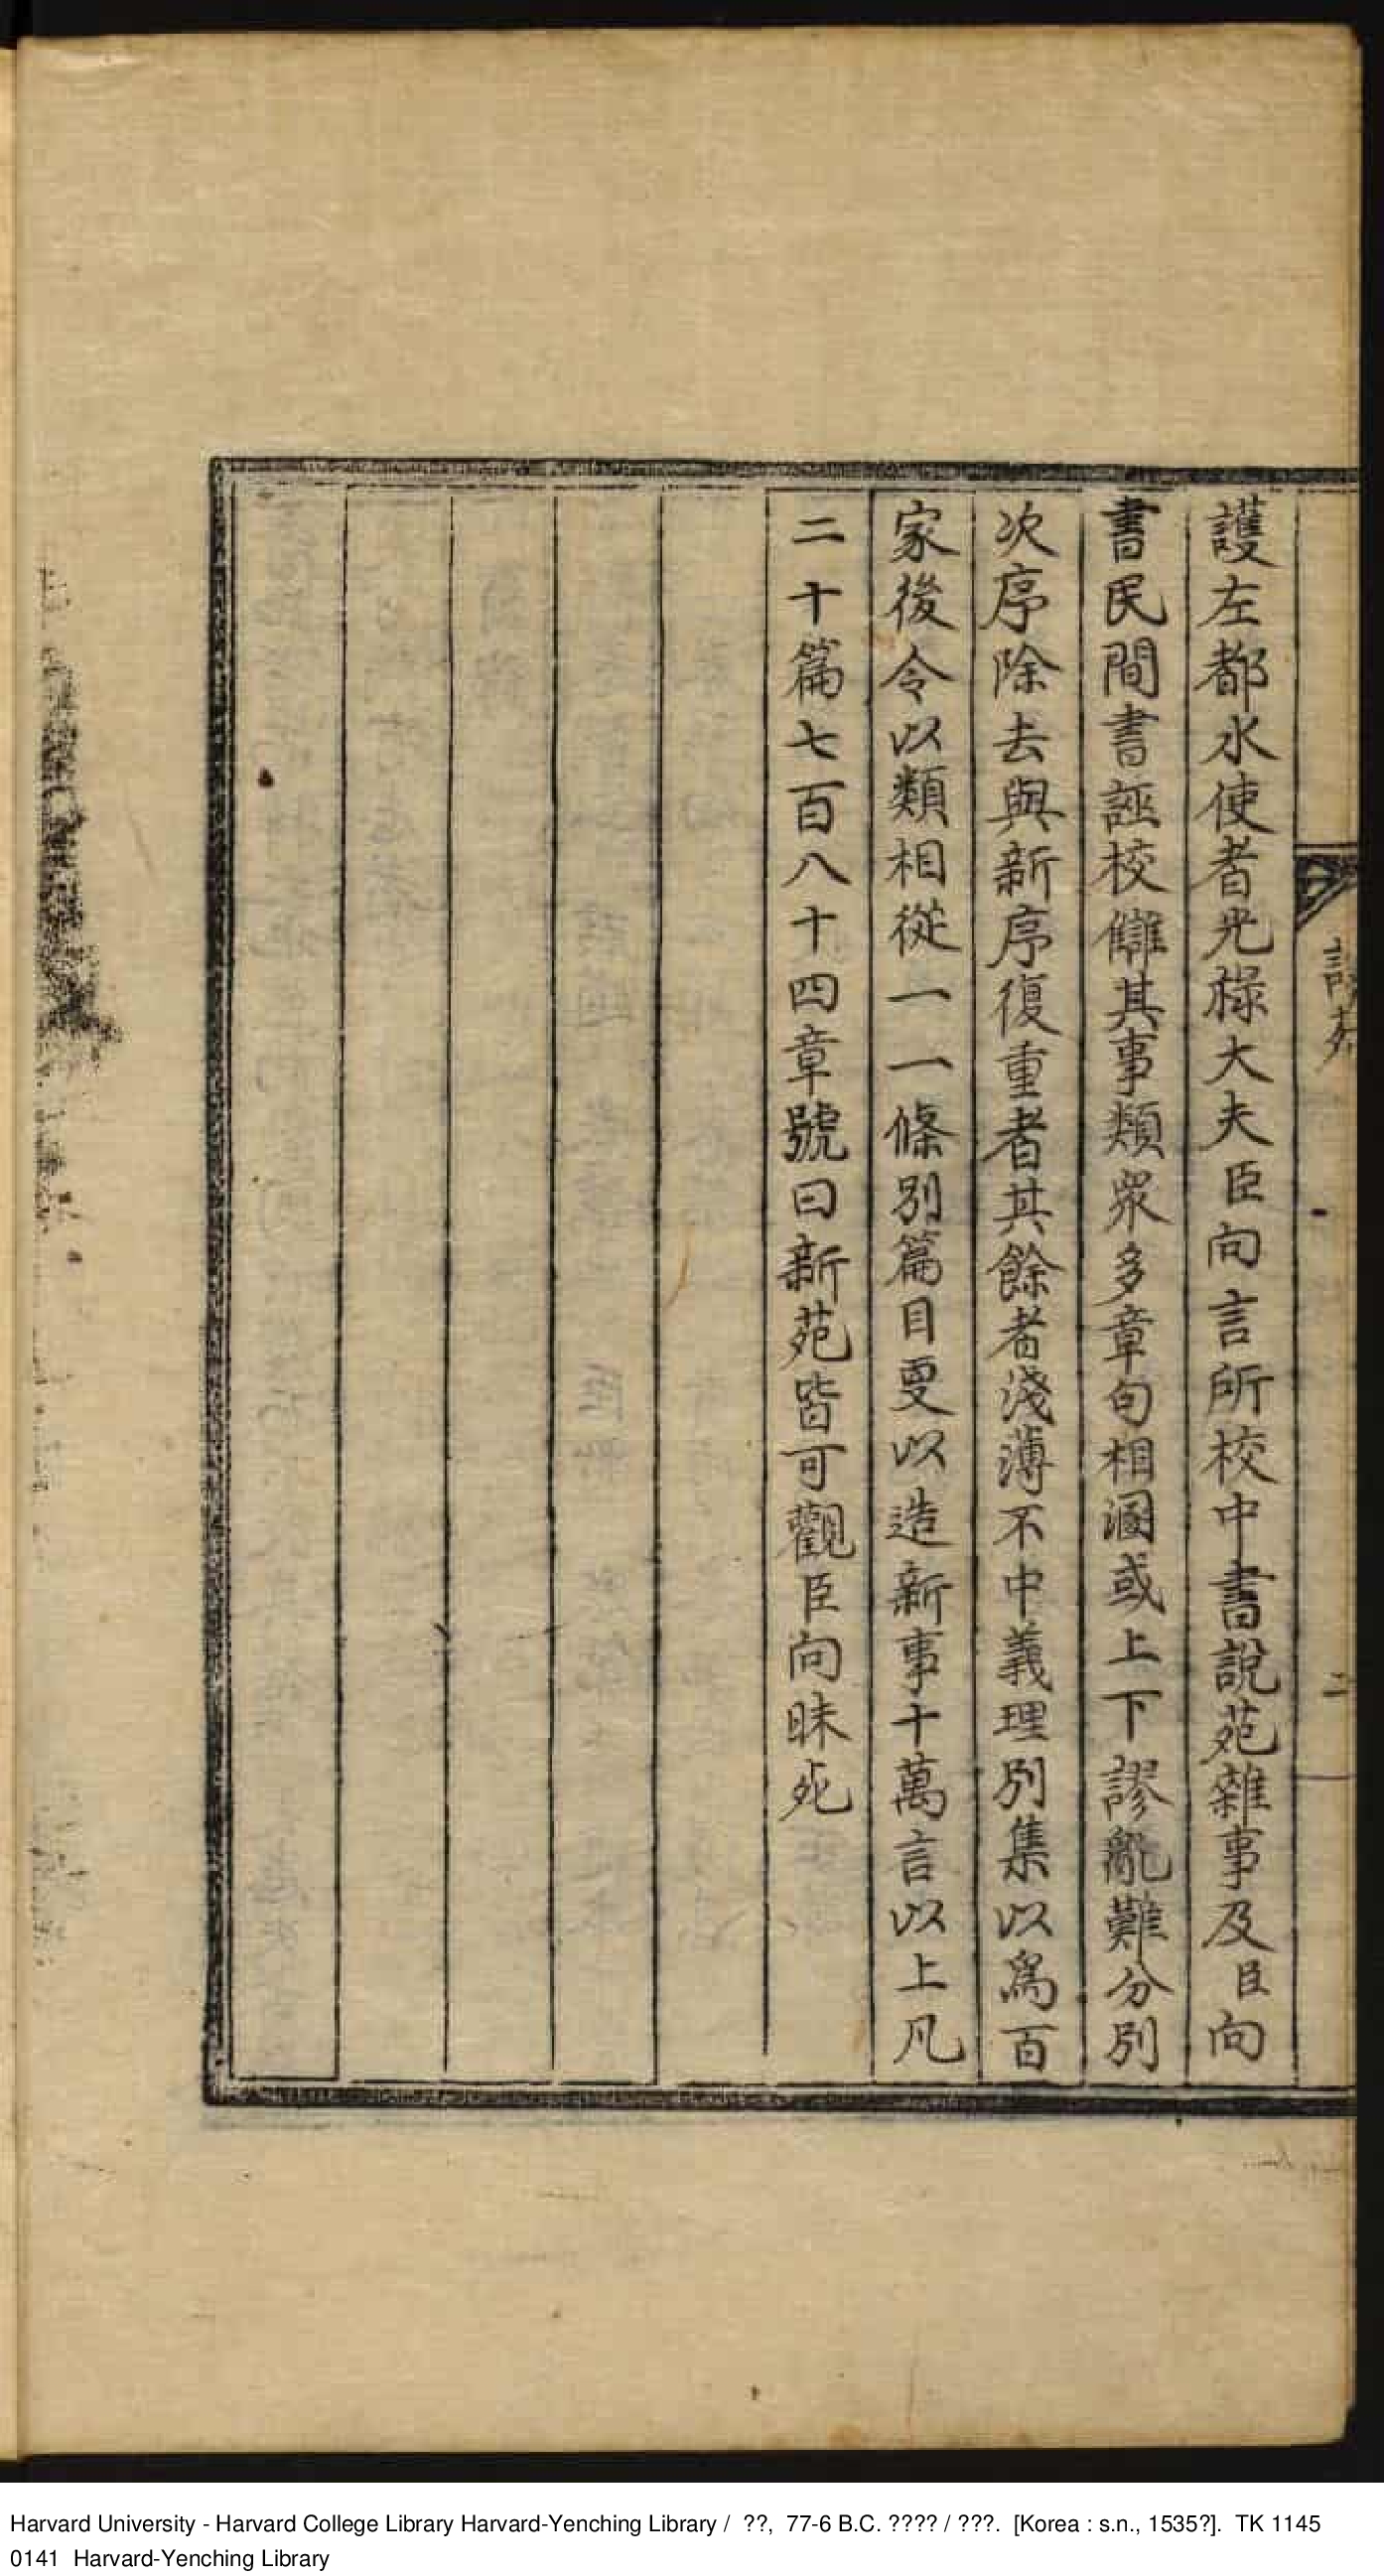 護左都水使者光祿大夫臣向言所校中書說苑雜事及臣向
書民間書誣校讎其事類衆多章句相溷或上下謬亂難分別
次序除去與新序復重者其餘者淺薄不中義理別集以爲百
家後令以類相從一一條別篇目更以造新事十萬言以上凡
二十篇七百八十四章號曰新苑皆可觀臣向昧死
二
Harvard University - Harvard College Library Harvard-Yenching Library / ??, 77-6 B.C. ???? / ???. [Korea : s.n., 1535?]. TK 1145
0141 Harvard-Yenching Library